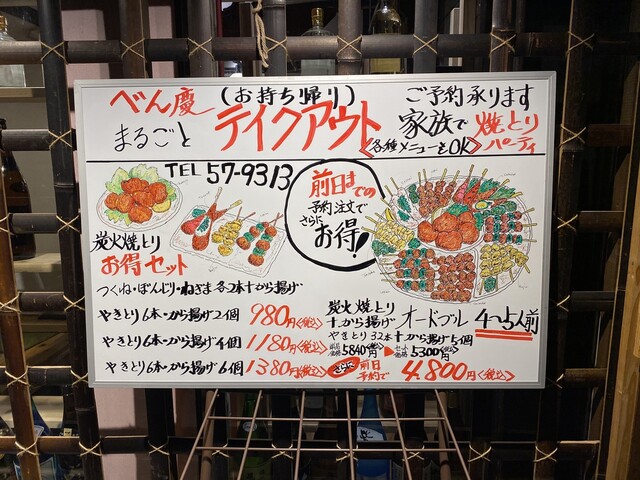 べん慶 (お持ち帰り) ご予約承ります
まるごと テイクアウト 家族で 焼とりパーティ
<各種メニューもOK>
TEL 57-9313
前日までの
予約注文で
さらに
お得!
炭火焼とり
お得セット
つくね・ぼんじり・ねぎま 各2本+から揚げ
やきとり6本・から揚げ2個 980円<税込>
やきとり6本・から揚げ4個 1180円<税込>
やきとり6本・から揚げ6個 1380円<税込>
炭火焼とり
+から揚げ オードブル 4〜5人前
やきとり32本+から揚げ5個
単品価格 5840円 ▶ セット価格 5300円<税込>
さらに 前日予約で 4.800円<税込>